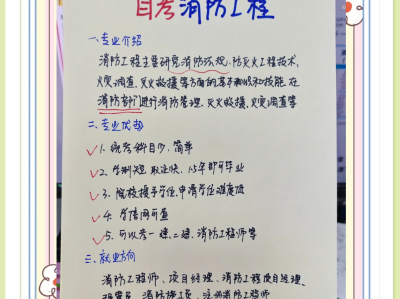 自考消防工程
一、专业介绍
消防工程主要研究消防法规、防灭火工程技术、
火灾调查、灭火救援等方面的基本知识和技能,在
消防部门进行消防管理、灭火救援、火灾调查等
二、专业优势
1. 统考科目少,简单
2. 学制短,取证快,1.5年即可毕业
3. 院校授予学位,申请学位难度低
4. 学信网可查
5. 可以考一建、二建、消防工程师等
三、就业方向
消防工程师、项目经理、消防工程项目经理、
消防工程师